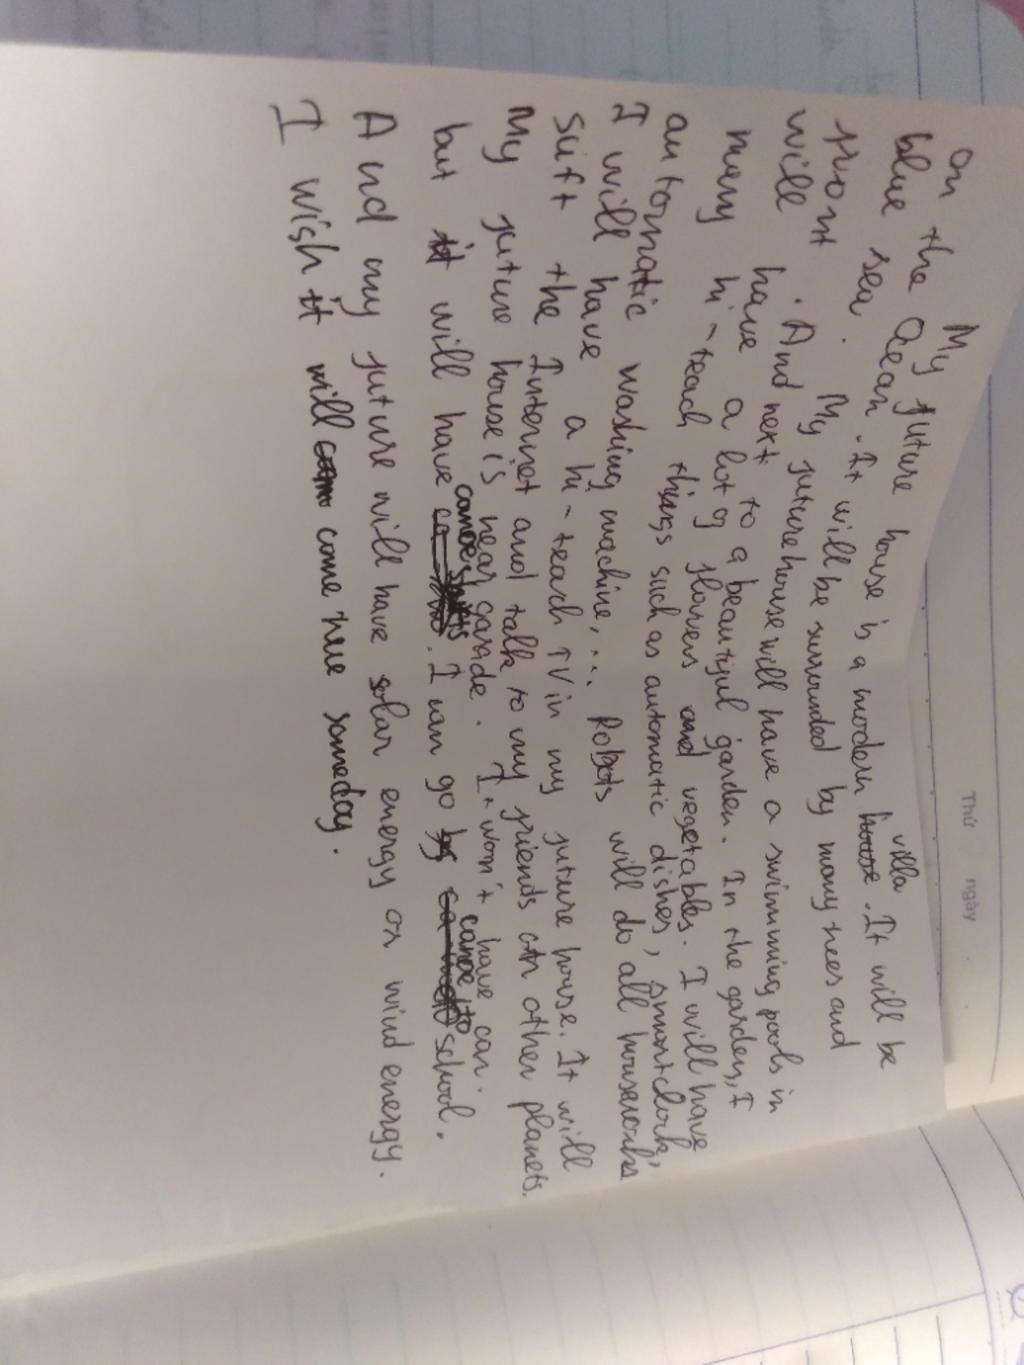 My future house is a modern villa. It will be
on the Ocean. It will be surrounded by many trees and
blue sea. My future house will have a swimming pools in
front. And next to a beautiful garden. In the garden, I
will have a lot of flowers and vegetables. I will have
many hi-teach things such as automatic dishes, smart clock,
automatic washing machine,... Robots will do all houseworks
I will have a hi-teach TV in my future house. It will
suft the Internet and talk to my friends on other planets.
My future house is near garside. I won't have car.
but it will have canoe. I can go canoe to school.
And my future will have solar energy or wind energy.
I wish it will come true someday.
Thứ ngày